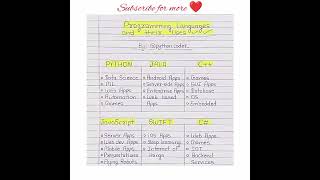 Subscribe for more ❤️
Programming Languages
and their Uses
By: @python.coder
PYTHON
Data Science
ML
Web Apps
Automation
Games
JAVA
Android Apps
Server-side Apps
Enterprise Apps
Web based
Apps
C++
Games
GUI Apps
Database
OS
Embedded
JavaScript
Server Apps
Web dev Apps
Mobile Apps
Presentations
Flying Robots
SWIFT
iOS Apps
Deep learning
Internet of
things
C#
Web Apps
Games
IOT
Backend
Services